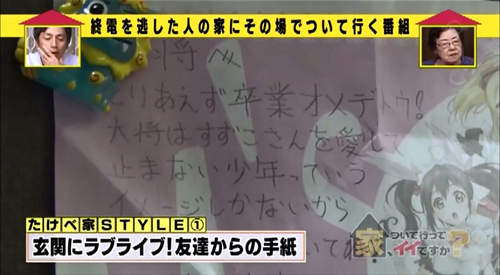 終電を逃した人の家にその場でついて行く番組
将へ
とりあえず卒業オメデトウ!
大将はすずこさんを愛して
止まない少年っていう
イメージしかないから
いてね
たけべ家STYLE①
玄関にラブライブ!友達からの手紙
家、ついて行ってイイですか?